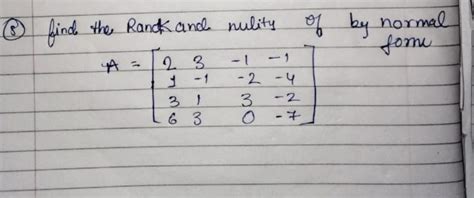 ⑧ find the Rank and nulity of by normal
form
A = [2 3 -1 -1
1 -1 -2 -4
3 1 3 -2
6 3 0 -7]